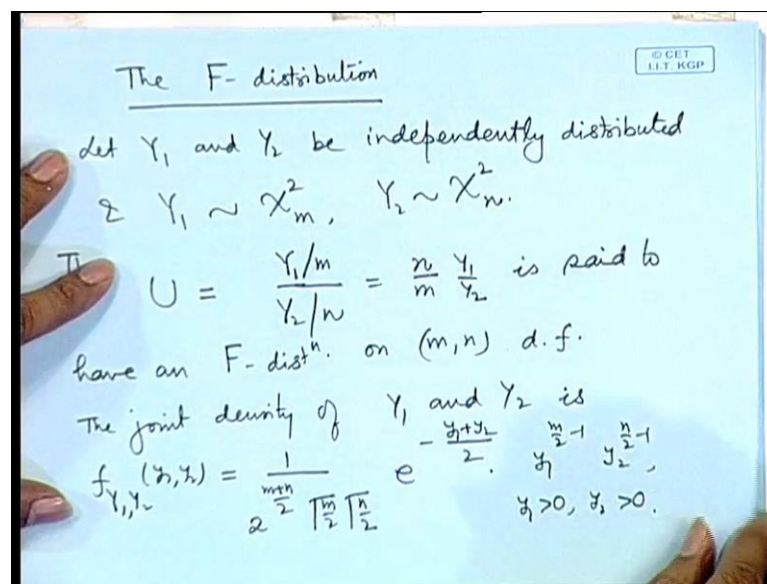 The F-distribution
© CET
I.I.T. KGP
Let Y₁ and Y₂ be independently distributed
& Y₁ ~ χ²ₘ, Y₂ ~ χ²ₙ.
U = (Y₁/m)/(Y₂/n) = (n/m) (Y₁/Y₂) is said to
have an F-distⁿ. on (m,n) d.f.
The joint density of Y₁ and Y₂ is
f_{Y₁,Y₂}(y₁,y₂) = 1/(2^{(m+n)/2} Γ(m/2) Γ(n/2)) e^{-(y₁+y₂)/2} . y₁^{m/2-1} y₂^{n/2-1},
y₁>0, y₂>0.